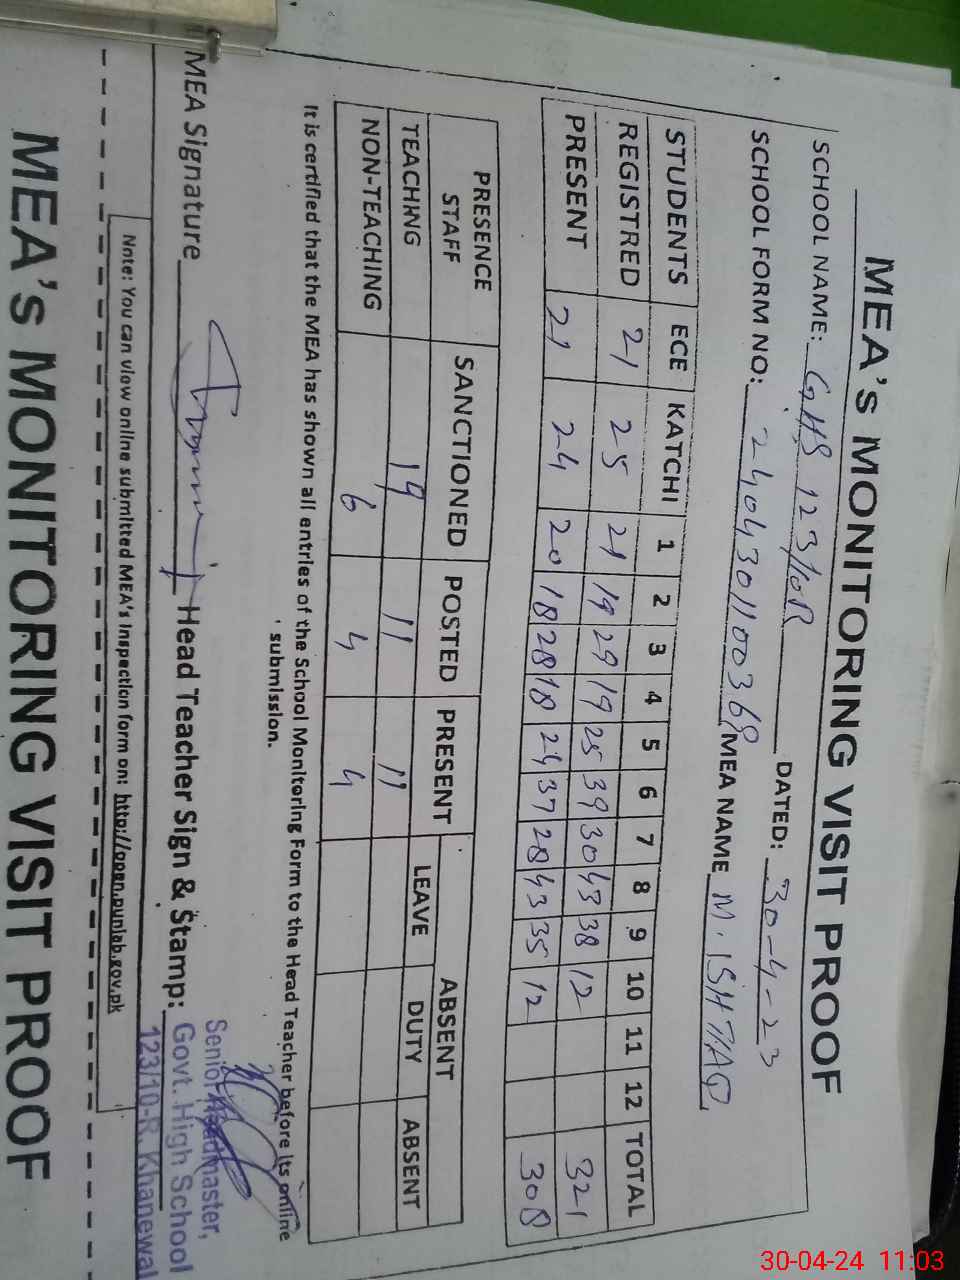 MEA's MONITORING VISIT PROOF
SCHOOL NAME: GHS 123/10R DATED: 30-4-23
SCHOOL FORM NO: 24043011003 MEA NAME M. ISHTAQ
STUDENTS ECE KATCHI 1 2 3 4 5 6 7 8 9 10 11 12 TOTAL
REGISTRED 21 25 21 19 29 19 25 39 30 43 38 12 321
PRESENT 21 24 20 18 28 18 24 37 28 43 35 12 308
PRESENCE STAFF SANCTIONED POSTED PRESENT ABSENT
LEAVE DUTY ABSENT
TEACHING 19 11 11
NON-TEACHING 6 4 4
It is certified that the MEA has shown all entries of the School Monitoring Form to the Head Teacher before its online
submission.
MEA Signature Head Teacher Sign & Stamp:
Senior Headmaster,
Govt. High School
123/10-R. Khanewal
Note: You can view online submitted MEA's inspection form on: http://open.punjab.gov.pk
MEA's MONITORING VISIT PROOF
30-04-24 11:03